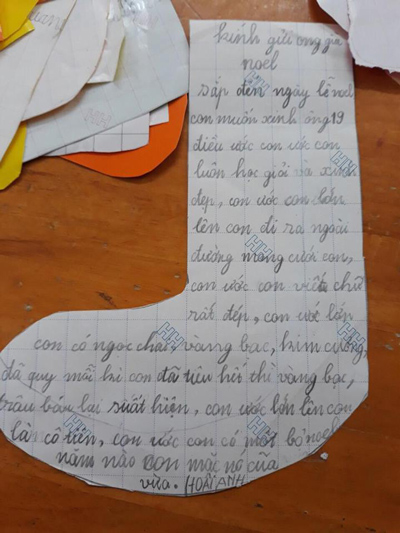 kính gửi ông già
noel
sắp đến ngày lễ noel
con muốn xinh ông 19
điều ước con ước con
luôn học giỏi và xinh
đẹp, con ước con lớn
lên con đi ra ngoài
đường mang cười con,
con ước con viết chữ
rất đẹp, con ước lớn
con có ngọc chai, vàng bạc, kim cương,
đã quy mỗi khi con đã tiêu hết thì vàng bạc,
trâu báu lại suất hiện, con ước lớn lên con
làn cô tiên, con ước con có một bộ noel
năm nào con mặc nó cũa
vừa. HOÀI ANH